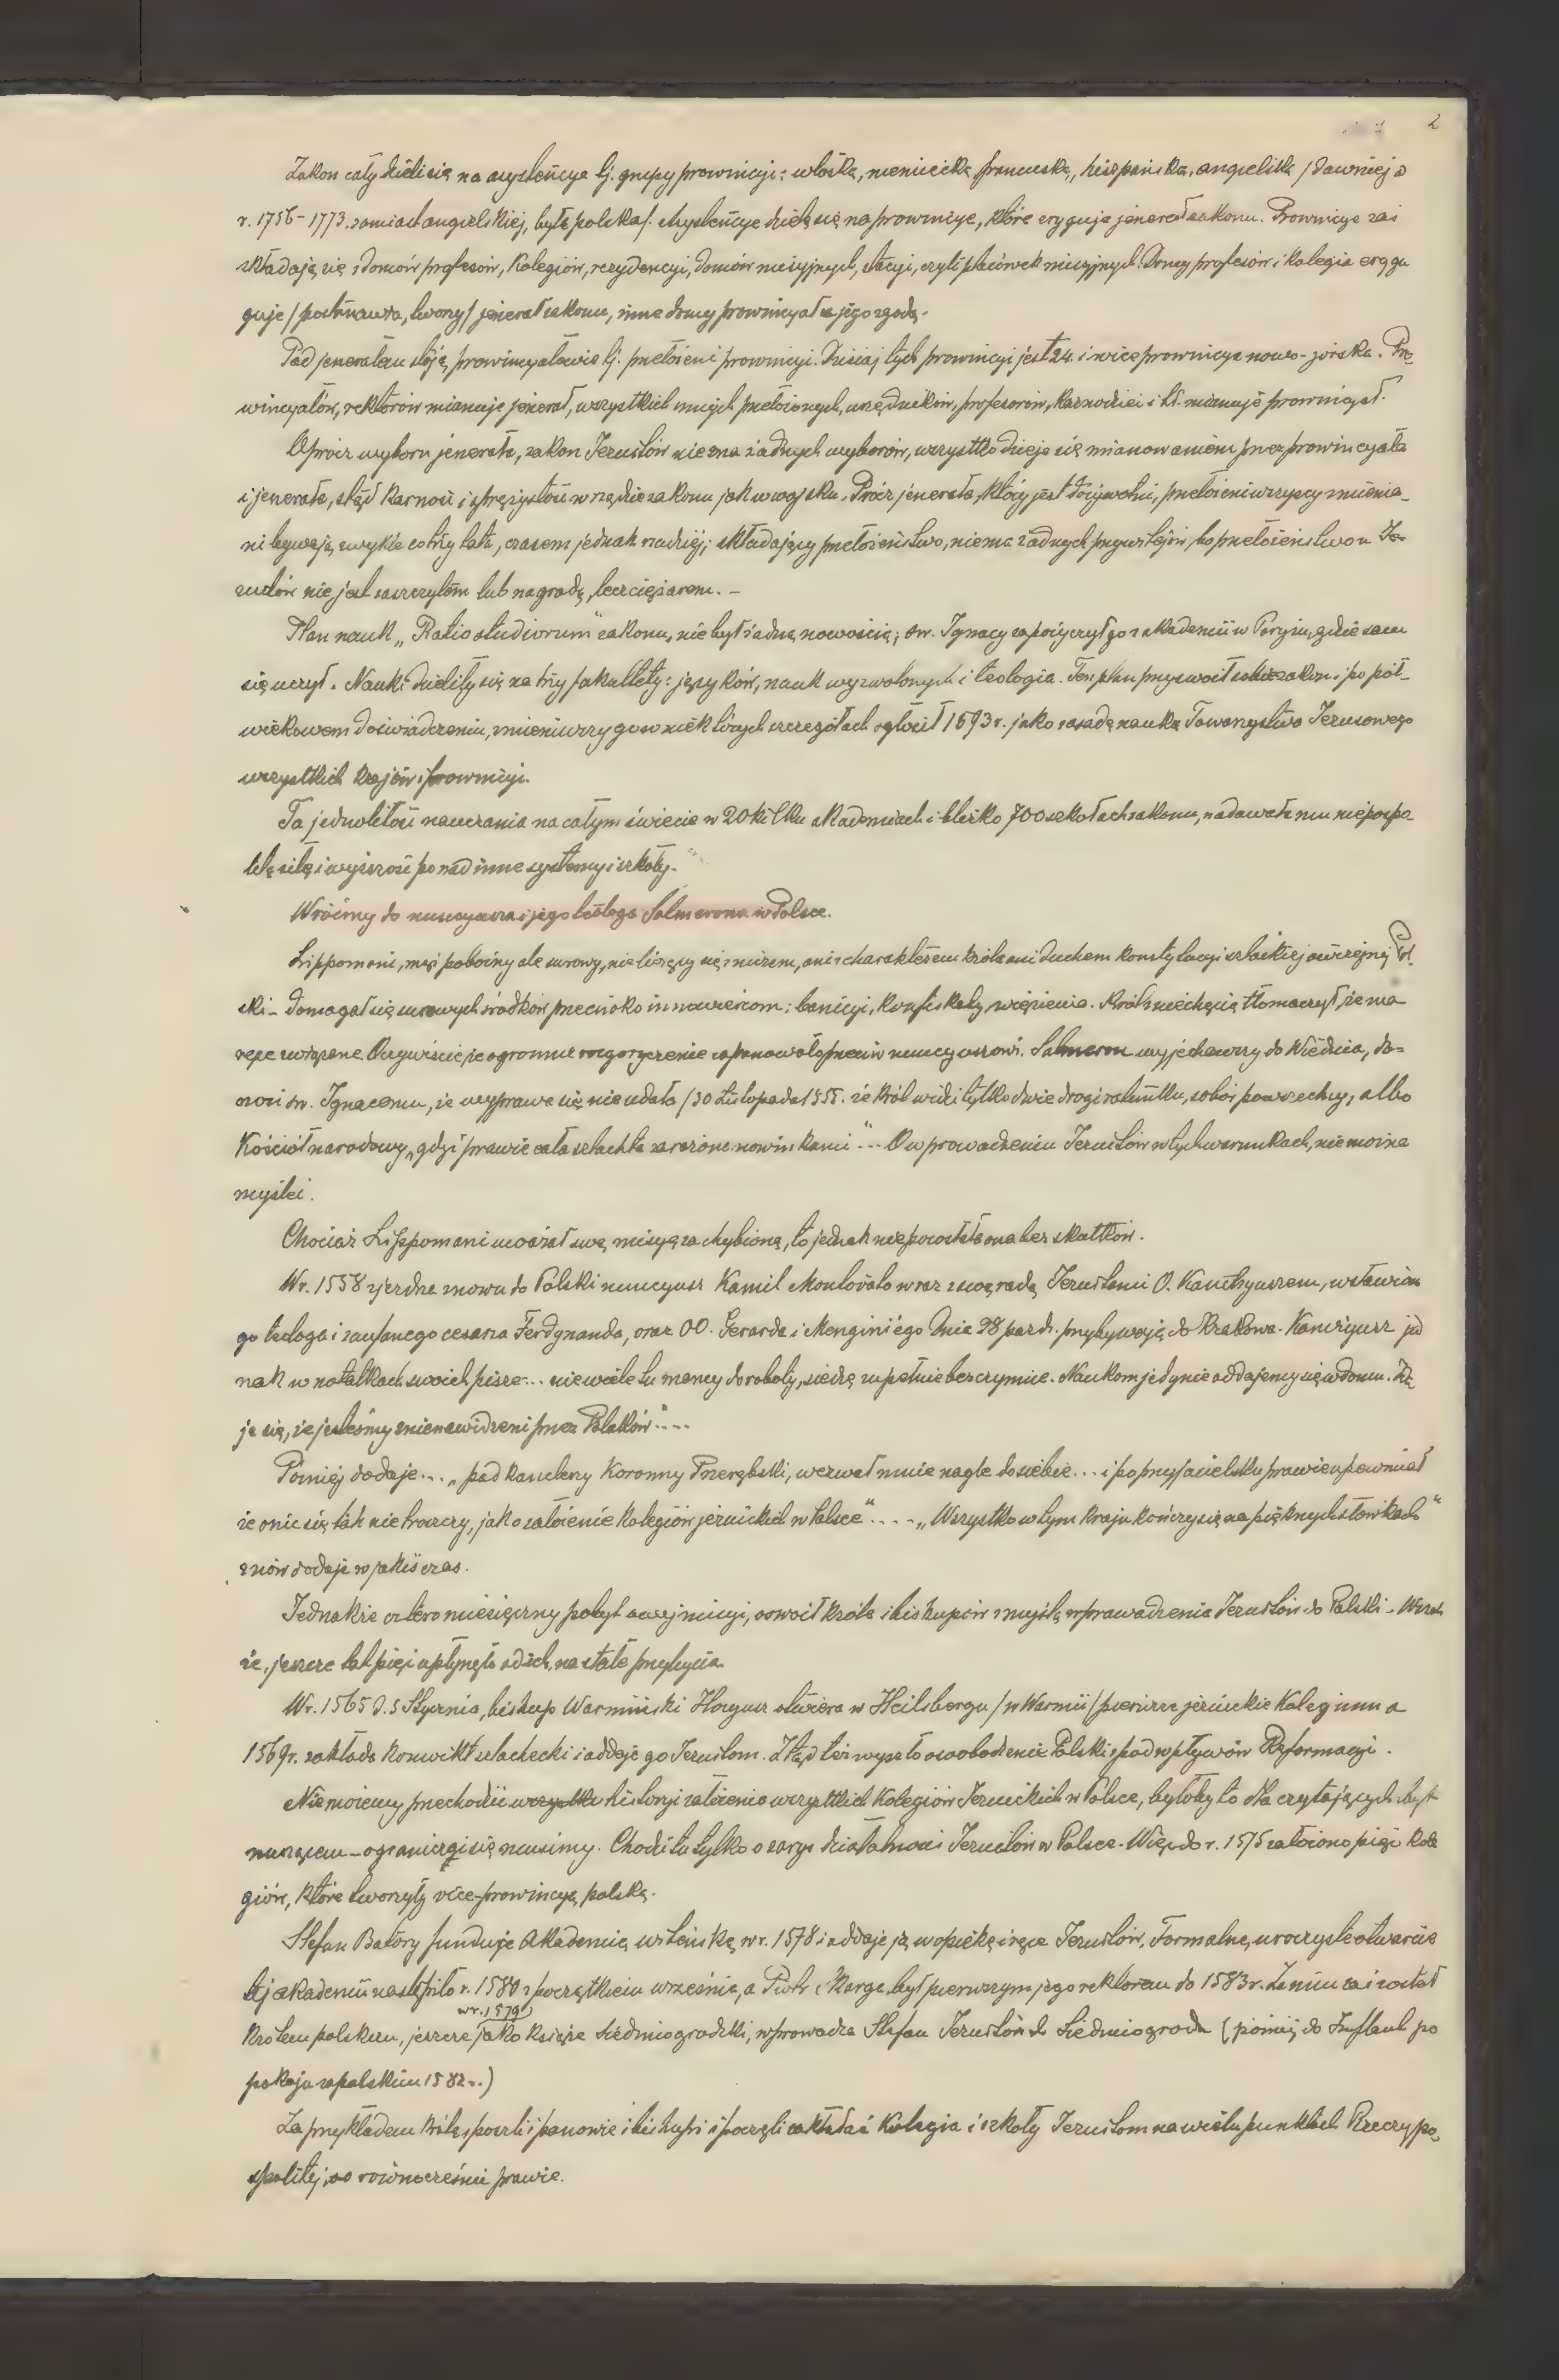 2
Zakon cały dzieli się na asystencye tj. grupy prowincji: włoską, niemiecką, francuską, hiszpańską, angielską / dawniej a
r. 1756 - 1773. zamiast angielskiej, była polska/. Asystencye dzielą się na prowincye, które eryguje jenerał zakonu. Prowincye zaś
składają się z domów profesów, Kolegiów, rezydencyi, domów misyjnych, stacyi, czyli placówek misyjnych. Domy profesów i kolegia erygu
guje / postanawia, tworzy/ jenerał zakonu, inne domy prowincyał za jego zgodą.
Pod jenerałem stoją prowincyałowie tj. przełożeni prowincyi. Dzisiaj tych prowincyi jest 24. i wice prowincya nowo-jorska. Pro
wincyałów, rektorów mianuje jenerał, wszystkich innych przełożonych, urzędników, profesorów, kaznodziei i td. mianuje prowincyał.
Oprócz wyboru jenerała, zakon Jezuitów nie zna żadnych wyborów, wszystko dzieje się mianowaniem przez prowincyała
i jenerała, stąd karność i sprężystość w rządzie zakonu jak w wojsku. Prócz jenerała, który jest dożywotni, przełożeni wszyscy zmienia_
ni bywają zwykle co trzy lata, czasem jednak rzadziej; składający przełożeństwo, niema żadnych przywilejów, bo przełożeństwo u Je-
zuitów nie jest zaszczytem lub nagrodą, lecz ciężarem. -
Plan nauk „Ratio studiorum" zakonu, nie był żadną nowością; św. Ignacy zapożyczył go z akademii w Paryżu, gdzie sam
się uczył. Nauki dzieliły się na trzy fakultety: języków, nauk wyzwolonych i teologia. Ten plan przyswoił sobie zakon i po pół_
wiekowem doświadczeniu, zmieniwszy go w niektórych szczegółach ogłosił 1593 r. jako zasadę nauką Towarzystwa Jezusowego
wszystkich krajów i prowincyi.
Ta jednolitość nauczania na całym świecie w 20 kilku akademiach i blisko 700 szkołach zakonu, nadawała mu niepospo-
litą siłę i wyższość ponad inne systemy i szkoły.
Wróćmy do nuncyusza i jego teologa Salmerona w Polsce.
Lippomani, mąż pobożny ale surowy, nie liczący się z niczem, ani z charakterem króla ani duchem konstytucyi szlacheckiej ówczesnej Pol.
ski - domagał się surowych środków przeciwko innowiercom: banicyi, konfiskaty, więzienia. Król z niechęcią tłomaczył, że ma
ręce związane. Oczywiście, że ogromne rozgoryczenie zapanowało przeciw nuncyuszowi. Salmeron wyjechawszy do Wiednia, do=
nosi św. Ignacemu, że wyprawa się nie udała / 30 Listopada 1555. że król widzi tylko dwie drogi ratunku, sobór powszechny, albo
Kościół narodowy „gdyż prawie cała szlachta zarażona nowinkami"... O wprowadzeniu Jezuitów w tych warunkach, nie można
myśleć.
Chociaż Lippomani uważał swą misyę za chybioną, to jednak nie pozostała ona bez skutków.
W r. 1558 zjeżdża znowu do Polski nuncyusz Kamil Montovato wraz z swą radą Jezuitami O. Kanizyuszem, wsławion
go teologa i zaufanego cesarza Ferdynanda, oraz OO. Gerarda i Menginiego. Dnia 28 paźdz. przybywają do Krakowa. Kanizyusz jed
nak w notatkach swoich pisze... niewiele tu mamy do roboty, siedzę zupełnie bezczynnie. Naukom jedynie oddajemy się w domu. Zda
je się, że jesteśmy znienawidzeni przez Polaków"....
Później dodaje... „podkanclerzy Koronny Przerębski, wezwał mnie nagle do siebie... i po przyjacielsku prawie upewniał
że o nic się tak nie troszczy, jak o założenie kolegiów jezuickich w Polsce".... „Wszystko w tym kraju kończy się na pięknych słówkach"
znów dodaje w jakiś czas.
Jednakże cztero miesięczny pobyt owej misyi, oswoił króla i biskupów z myślą wprowadzenia Jezuitów do Polski. Wszak
że, jeszcze lat pięć upłynęło od ich na stałe przybycia.
W r. 1565 d. 5 Stycznia, biskup Warmiński Hozyusz otwiera w Heilsbergu / w Warmii / pierwsze jezuickie Kolegium a
1569 r. zakłada konwikt szlachecki i oddaje go Jezuitom. Ztąd też wyszło oswobodzenie Polski z pod wpływów Reformacyi.
Nie możemy przechodzić wszystko historji założenia wszystkich Kolegiów Jezuickich w Polsce, byłoby to dla czytających zbyt
nużącem - ograniczyć się musimy. Chodzi tu tylko o zarys działalności Jezuitów w Polsce. Więc do r. 1575 założono pięć kole
giów, które tworzyły vice-prowincyę polską.
Stefan Batory funduje Akademię wileńską w r. 1578 i oddaje ją w opiekę i ręce Jezuitów. Formalne, uroczyste otwarcie
tej akademii nastąpiło r. 1580 z początkiem września, a Piotr Skarga był pierwszym jego rektorem do 1583 r. Zanim zaś został
w r. 1579
królem polskim, jeszcze jako książe Siedmiogrodzki, wprowadza Stefan Jezuitów do Siedmiogrodu (później do Inflant po
pokoju zapolskim 1582..)
Za przykładem króla, poszli i panowie i biskupi i poczęli zakładać Kolegia i szkoły Jezuitom na wielu punktach Rzeczypo-
spolitej, co równocześnie prawie.